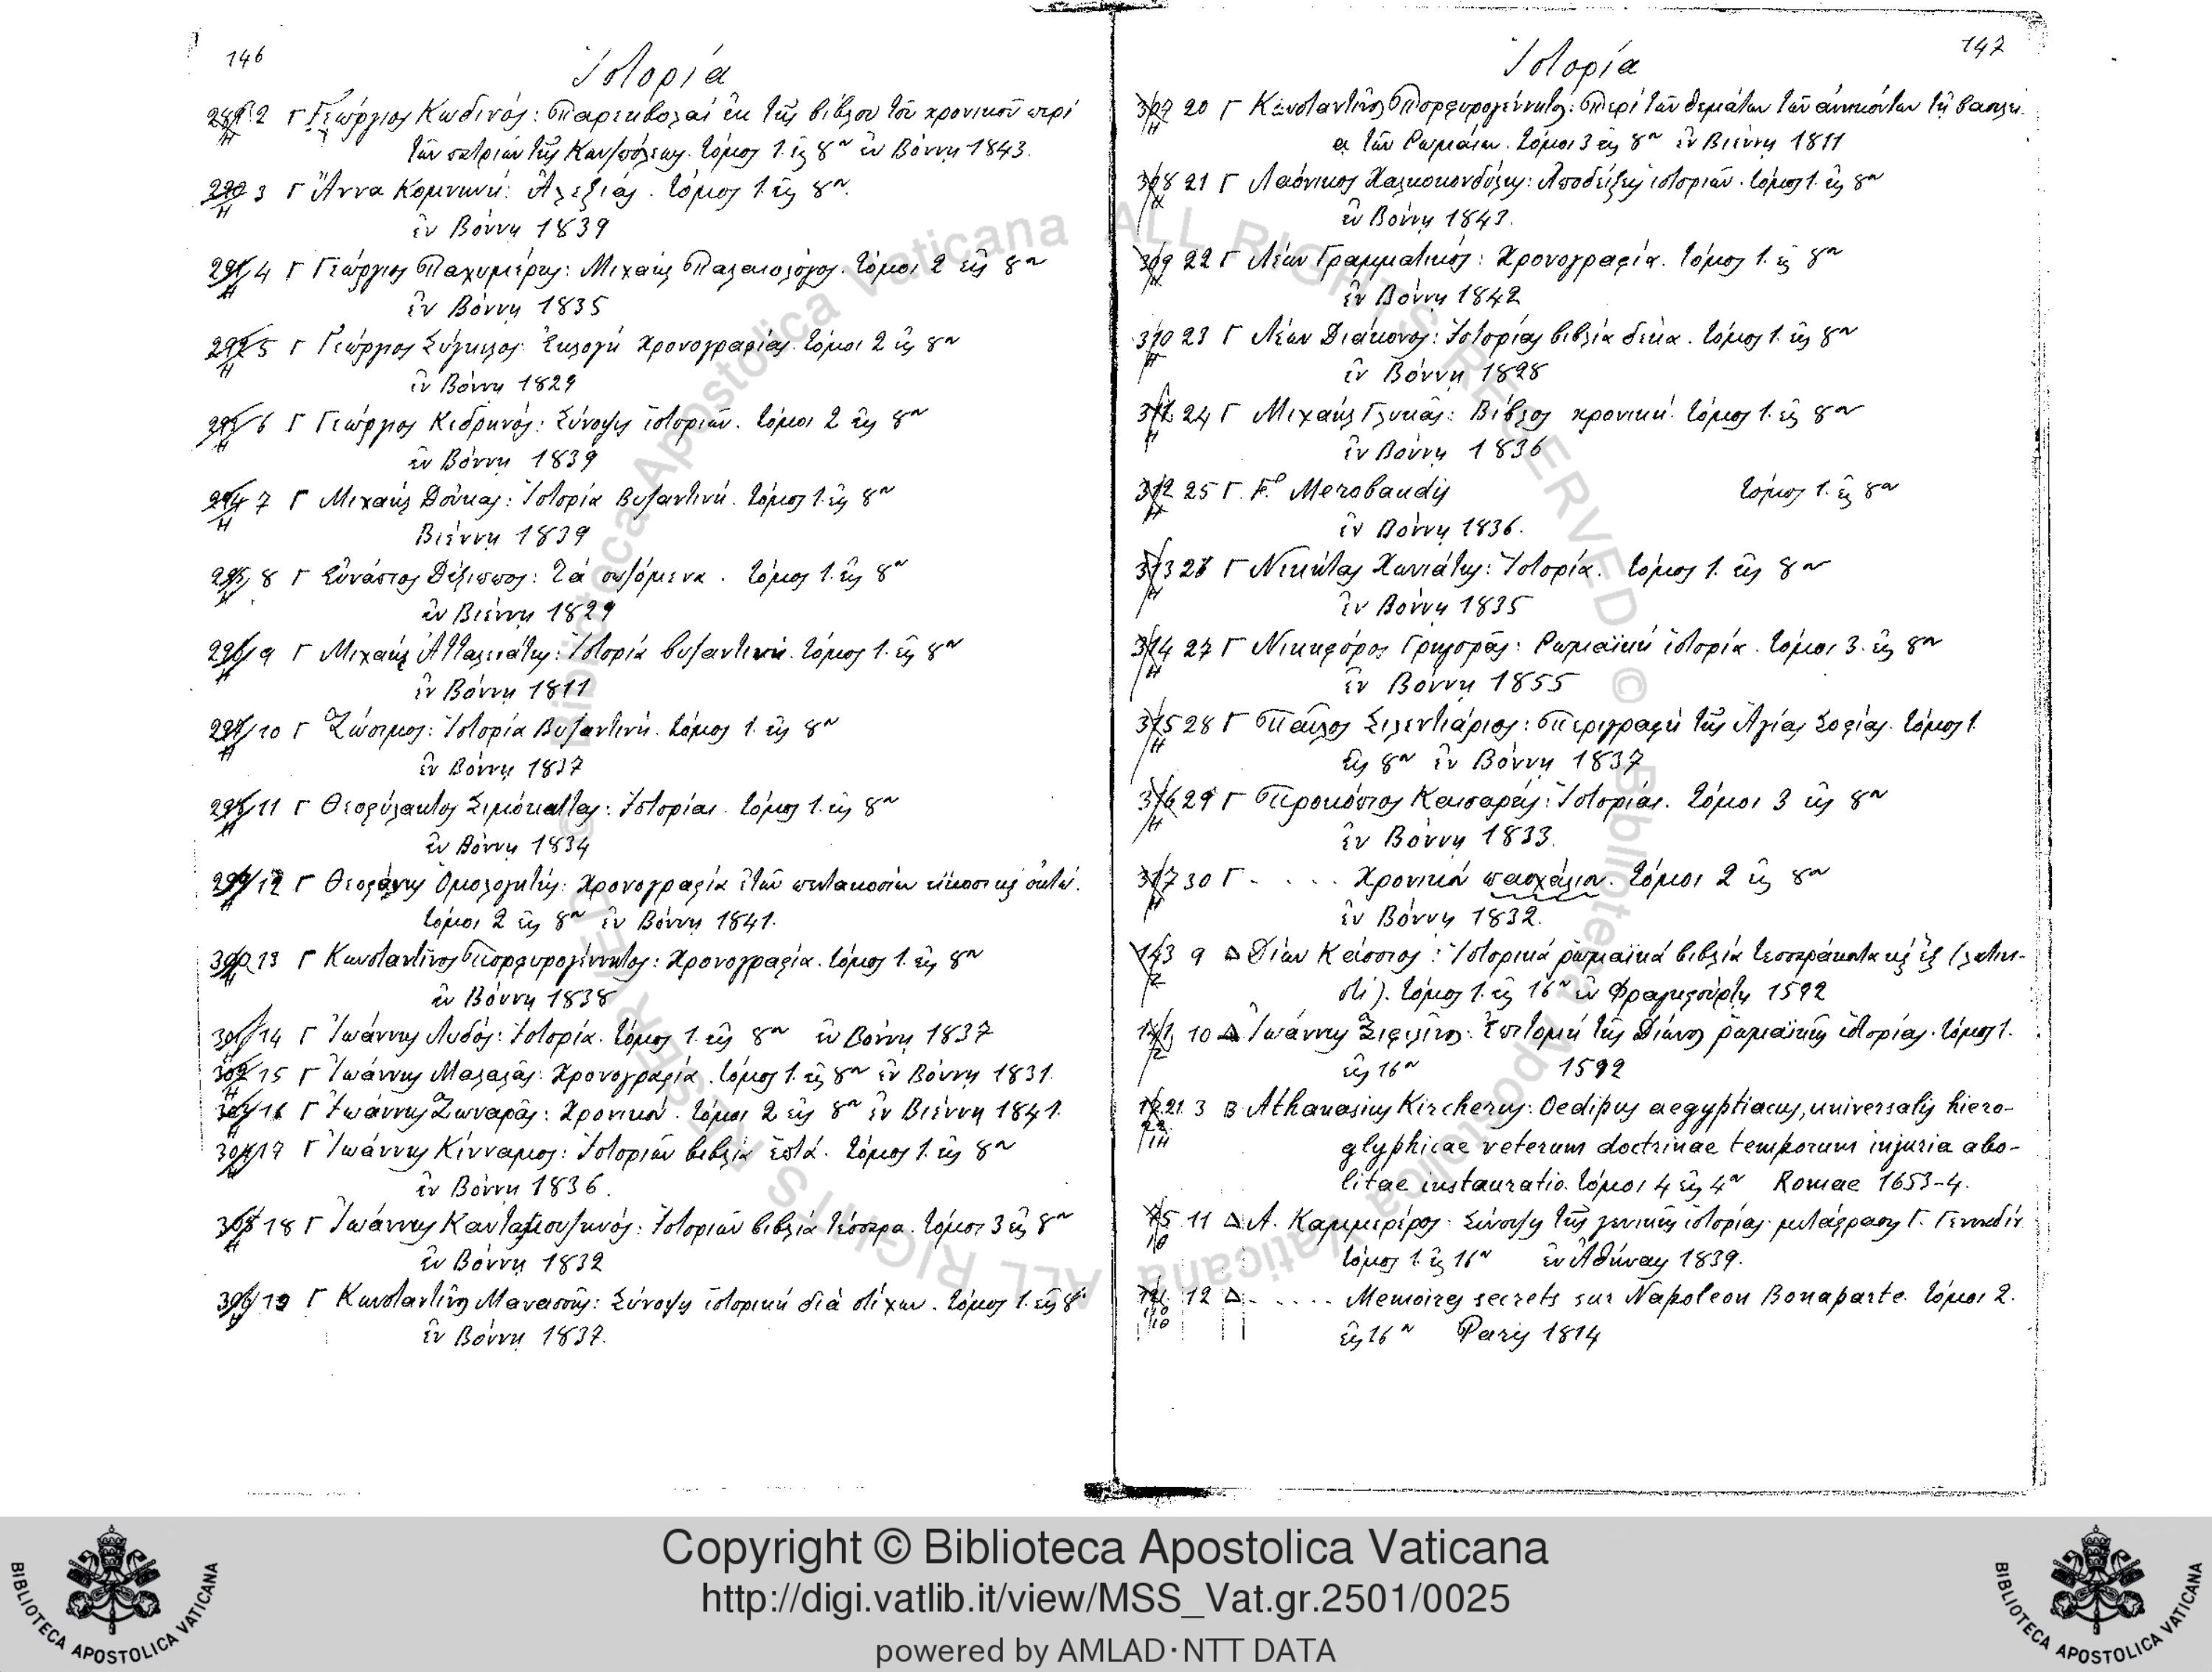 146
Ἱστορία
289 2 Γ Γεώργιος Κωδινός: Παρεκβολαί ἐκ τῆς βίβλου τοῦ χρονικοῦ περί
τῶν πατρίων τῆς Κων/πόλεως. τόμος 1. εἰς 8ον ἐν Βόννῃ 1843.
290 3 Γ Ἄννα Κομνηνή: Ἀλεξιάς. τόμος 1. εἰς 8ον.
ἐν Βόννῃ 1839
291 4 Γ Γεώργιος Παχυμέρης: Μιχαήλ Παλαιολόγος. τόμοι 2 εἰς 8ον
ἐν Βόννῃ 1835
292 5 Γ Γεώργιος Σύγκελος: Ἐκλογή χρονογραφίας. τόμοι 2 εἰς 8ον
ἐν Βόννῃ 1829
293 6 Γ Γεώργιος Κεδρηνός: Σύνοψις ἱστοριῶν. τόμοι 2 εἰς 8ον
ἐν Βόννῃ 1839
294 7 Γ Μιχαήλ Δούκας: Ἱστορία Βυζαντινή. τόμος 1. εἰς 8ον
Βιέννῃ 1839
295 8 Γ Εὐνάπιος Δέξιππος: Τά σωζόμενα. τόμος 1. εἰς 8ον
ἐν Βιέννῃ 1829
296 9 Γ Μιχαήλ Ἀτταλειάτης: Ἱστορία βυζαντινή. τόμος 1. εἰς 8ον
ἐν Βόννῃ 1811
297 10 Γ Ζώσιμος: Ἱστορία Βυζαντινή. τόμος 1. εἰς 8ον
ἐν Βόννῃ 1837
298 11 Γ Θεοφύλακτος Σιμόκαττας: Ἱστορίαι. τόμος 1. εἰς 8ον
ἐν Βόννῃ 1834
299 12 Γ Θεοφάνης Ὁμολογητής: Χρονογραφία ἐτῶν πεντακοσίων εἴκοσι καί ὀκτώ.
τόμοι 2 εἰς 8ον ἐν Βόννῃ 1841.
300 13 Γ Κωνσταντῖνος Πορφυρογέννητος: Χρονογραφία. τόμος 1. εἰς 8ον
ἐν Βόννῃ 1838
301 14 Γ Ἰωάννης Λυδός: Ἱστορία. τόμος 1. εἰς 8ον ἐν Βόννῃ 1837
302 15 Γ Ἰωάννης Μαλαλᾶς: Χρονογραφία. τόμος 1. εἰς 8ον ἐν Βόννῃ 1831.
303 16 Γ Ἰωάννης Ζωναρᾶς: Χρονικόν. τόμοι 2 εἰς 8ον ἐν Βιέννῃ 1841.
304 17 Γ Ἰωάννης Κίνναμος: Ἱστοριῶν βιβλία ἑπτά. τόμος 1. εἰς 8ον
ἐν Βόννῃ 1836.
305 18 Γ Ἰωάννης Καντακουζηνός: Ἱστοριῶν βιβλία τέσσερα. τόμοι 3 εἰς 8ον
ἐν Βόννῃ 1832
306 19 Γ Κωνσταντῖνος Μανασσῆς: Σύνοψις ἱστορική διά στίχων. τόμος 1. εἰς 8ον
ἐν Βόννῃ 1837.
147
Ἱστορία
307 20 Γ Κωνσταντῖνος Πορφυρογέννητος: Περί τῶν θεμάτων τῶν ἀνηκόντων τῇ βασιλεί-
ᾳ τῶν Ρωμαίων. τόμοι 3 εἰς 8ον ἐν Βιέννῃ 1811
308 21 Γ Λαόνικος Χαλκοκονδύλης: Ἀποδείξεις ἱστοριῶν. τόμος 1. εἰς 8ον
ἐν Βόννῃ 1843.
309 22 Γ Λέων Γραμματικός: Χρονογραφία. τόμος 1. εἰς 8ον
ἐν Βόννῃ 1842
310 23 Γ Λέων Διάκονος: Ἱστορίας βιβλία δέκα. τόμος 1. εἰς 8ον
ἐν Βόννῃ 1828
311 24 Γ Μιχαήλ Γλυκᾶς: Βίβλος χρονική. τόμος 1. εἰς 8ον
ἐν Βόννῃ 1836
312 25 Γ. F.º Merobaudis τόμος 1. εἰς 8ον
ἐν Βόννῃ 1836.
313 26 Γ Νικήτας Χωνιάτης: Ἱστορία. τόμος 1. εἰς 8ον
ἐν Βόννῃ 1835
314 27 Γ Νικηφόρος Γρηγορᾶς: Ρωμαϊκή ἱστορία. τόμοι 3. εἰς 8ον
ἐν Βόννῃ 1855
315 28 Γ Παῦλος Σιλεντιάριος: Περιγραφή τῆς Ἁγίας Σοφίας. τόμος 1.
εἰς 8ον ἐν Βόννῃ 1837
316 29 Γ Προκόπιος Καισαρεύς: Ἱστορίαι. τόμοι 3 εἰς 8ον
ἐν Βόννῃ 1833.
317 30 Γ . . . . Χρονικόν πασχάλιον. τόμοι 2 εἰς 8ον
ἐν Βόννῃ 1832.
143 9 Δ Δίων Κάσσιος: Ἱστορικά ρωμαϊκά βιβλία τεσσεράκοντα καί ἕξ (λατιν-
στί). τόμος 1. εἰς 16ον ἐν Φραγκφούρτῃ 1592
10 Δ Ἰωάννης Ξιφιλῖνος: Ἐπιτομή τῆς Δίωνος ρωμαϊκῆς ἱστορίας. τόμος 1.
εἰς 16ον 1592
3 Β Athanasius Kircherus: Oedipus aegyptiacus, universalis hiero-
glyphicae veterum doctrinae temporum injuria abo-
litae instauratio. τόμοι 4 εἰς 4ον Romae 1653-4.
11 Δ Α. Καμμερέρος: Σύνοψις τῆς γενικῆς ἱστορίας μετάφρασις Γ. Γενναδίου
τόμος 1. εἰς 16ον ἐν Ἀθήναις 1839.
12 Δ . . . . . Memoires secrets sur Napoleon Bonaparte. τόμοι 2.
εἰς 16ον Paris 1814
© Biblioteca Apostolica Vaticana ALL RIGHTS RESERVED
Copyright © Biblioteca Apostolica Vaticana
http://digi.vatlib.it/view/MSS_Vat.gr.2501/0025
powered by AMLAD·NTT DATA
BIBLIOTECA APOSTOLICA VATICANA
BIBLIOTECA APOSTOLICA VATICANA